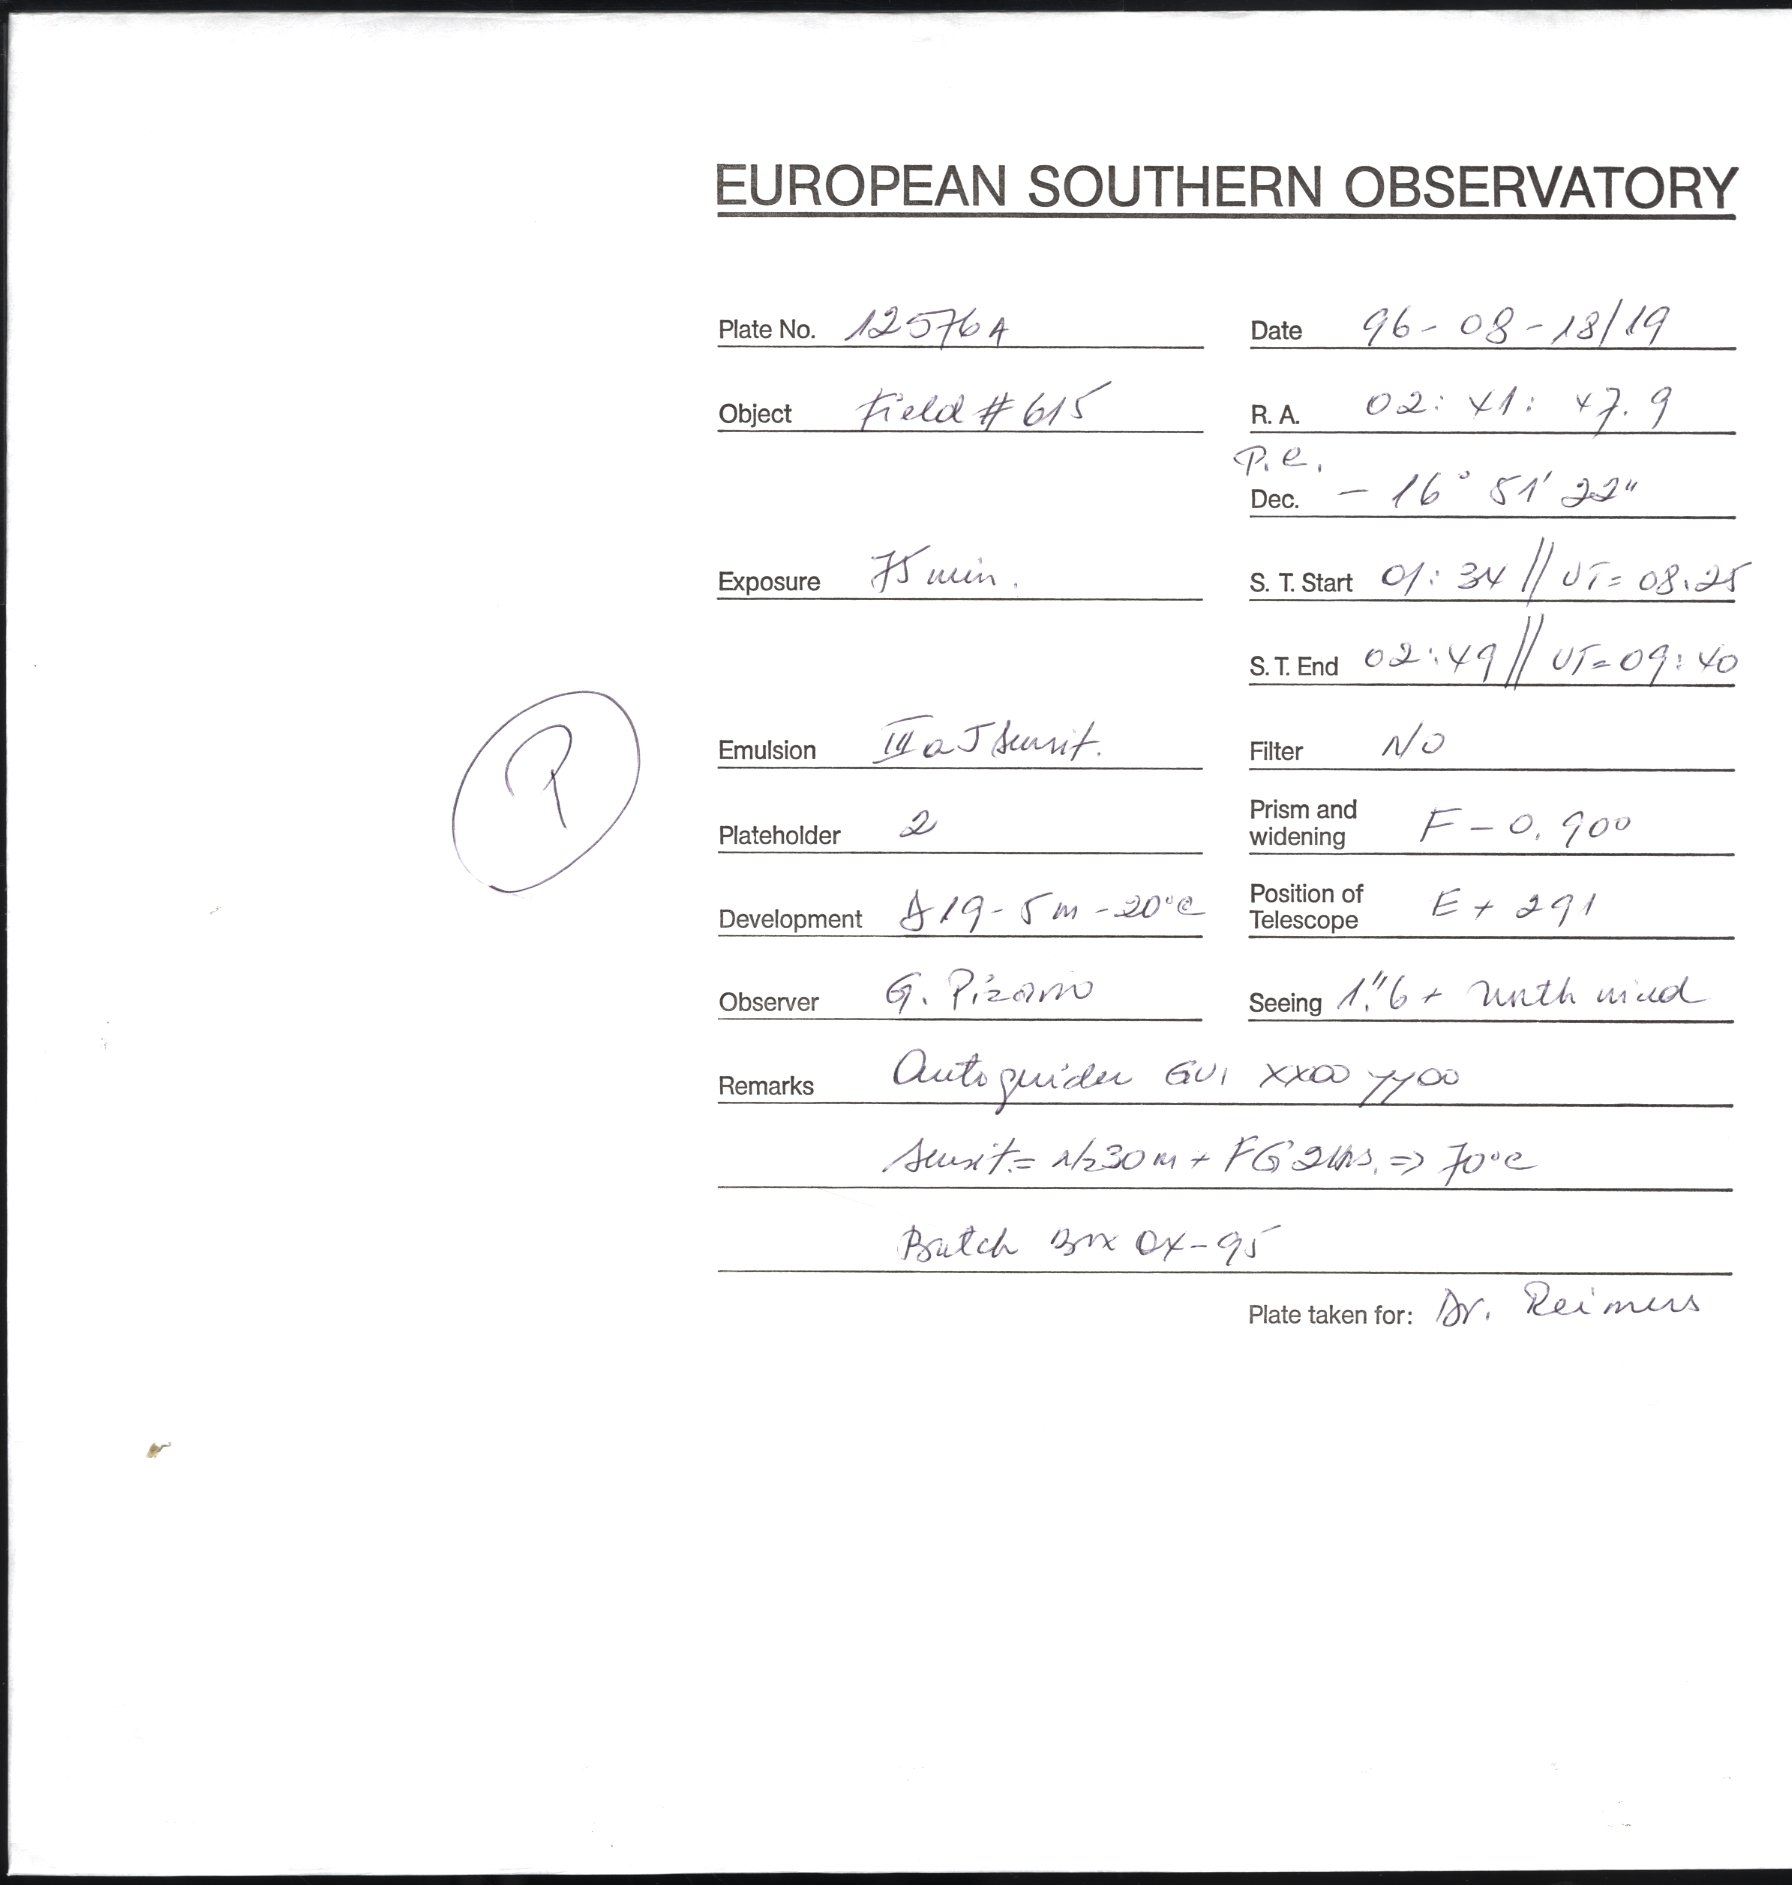 EUROPEAN SOUTHERN OBSERVATORY
Plate No. 12576A Date 96-08-18/19
Object Field #615 R. A. 02: 41: 47.9
P.e.
Dec. - 16° 51' 22"
Exposure 75 min. S. T. Start 01: 34 // UT= 08.25
S. T. End 02:49 // UT=09:40
Emulsion III a J Sensit. Filter NO
R
Plateholder 2 Prism and widening F - 0.900
Development D19-5m-20°C Position of Telescope E + 291
Observer G. Pizarro Seeing 1."6 + North wind
Remarks Autoguider GU1 XX00 YY00
Sensit.= N230m + FG2hrs. => 70°C
Batch Box 0X-95
Plate taken for: Dr. Reimers